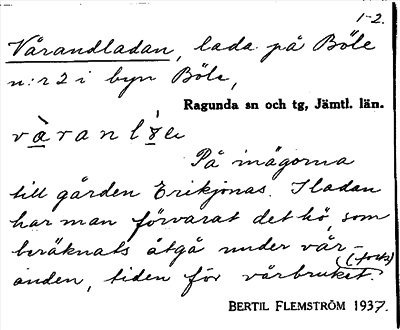 1-2.
Vårandladan, lada på Böle
n:r 2 i byn Böle,
Ragunda sn och tg, Jämtl. län.
På inägorna
till gården Erikjonas. I ladan
har man förvarat det hö, som
beräknats åtgå under vår-
anden, tiden för vårbruket.
(forts)
BERTIL FLEMSTRÖM 1937.